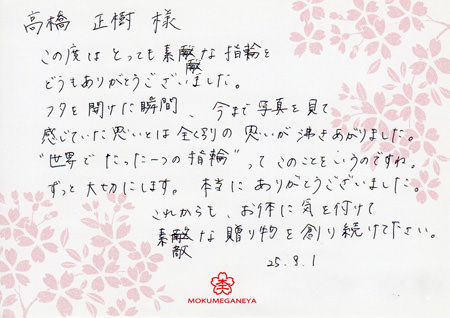 高橋 正樹 様
この度はとっても素敵な指輪を
どうもありがとうございました。
フタを開けた瞬間、今まで写真を見て
感じていた思いとは全く別の思いが沸きあがりました。
"世界でたった一つの指輪"ってこのことをいうのですね。
ずっと大切にします。本当にありがとうございました。
これからも、お体に気を付けて
素敵な贈り物を創り続けて下さい。
25.9.1
MOKUMEGANEYA